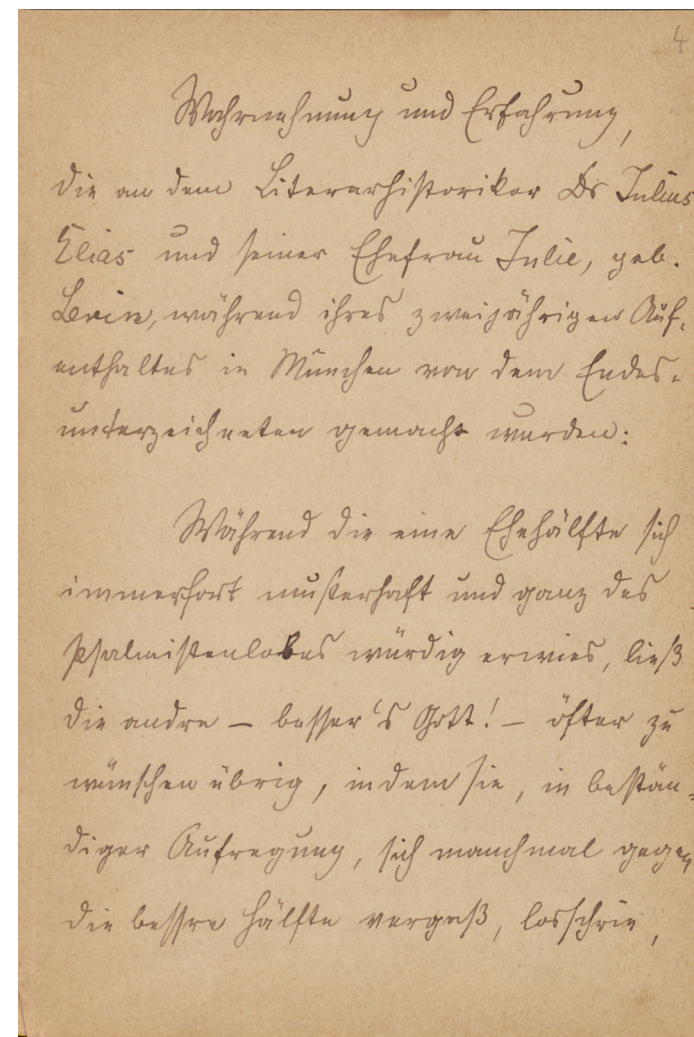 4
Wahrnehmung und Erfahrung,
die an dem Literarhistoriker Dr Julius
Elias und seiner Ehefrau Julie, geb.
Levin, während ihres zweijährigen Auf-
enthaltes in München von dem Endes-
unterzeichneten gemacht wurden:
Während die eine Ehehälfte sich
immerfort musterhaft und ganz des
Psalmistenlobes würdig erwies, ließ
die andre – besser's Gott! – öfter zu
wünschen übrig, indem sie, in bestän-
diger Aufregung, sich manchmal gegen
die bessre Hälfte vergaß, losschrie,